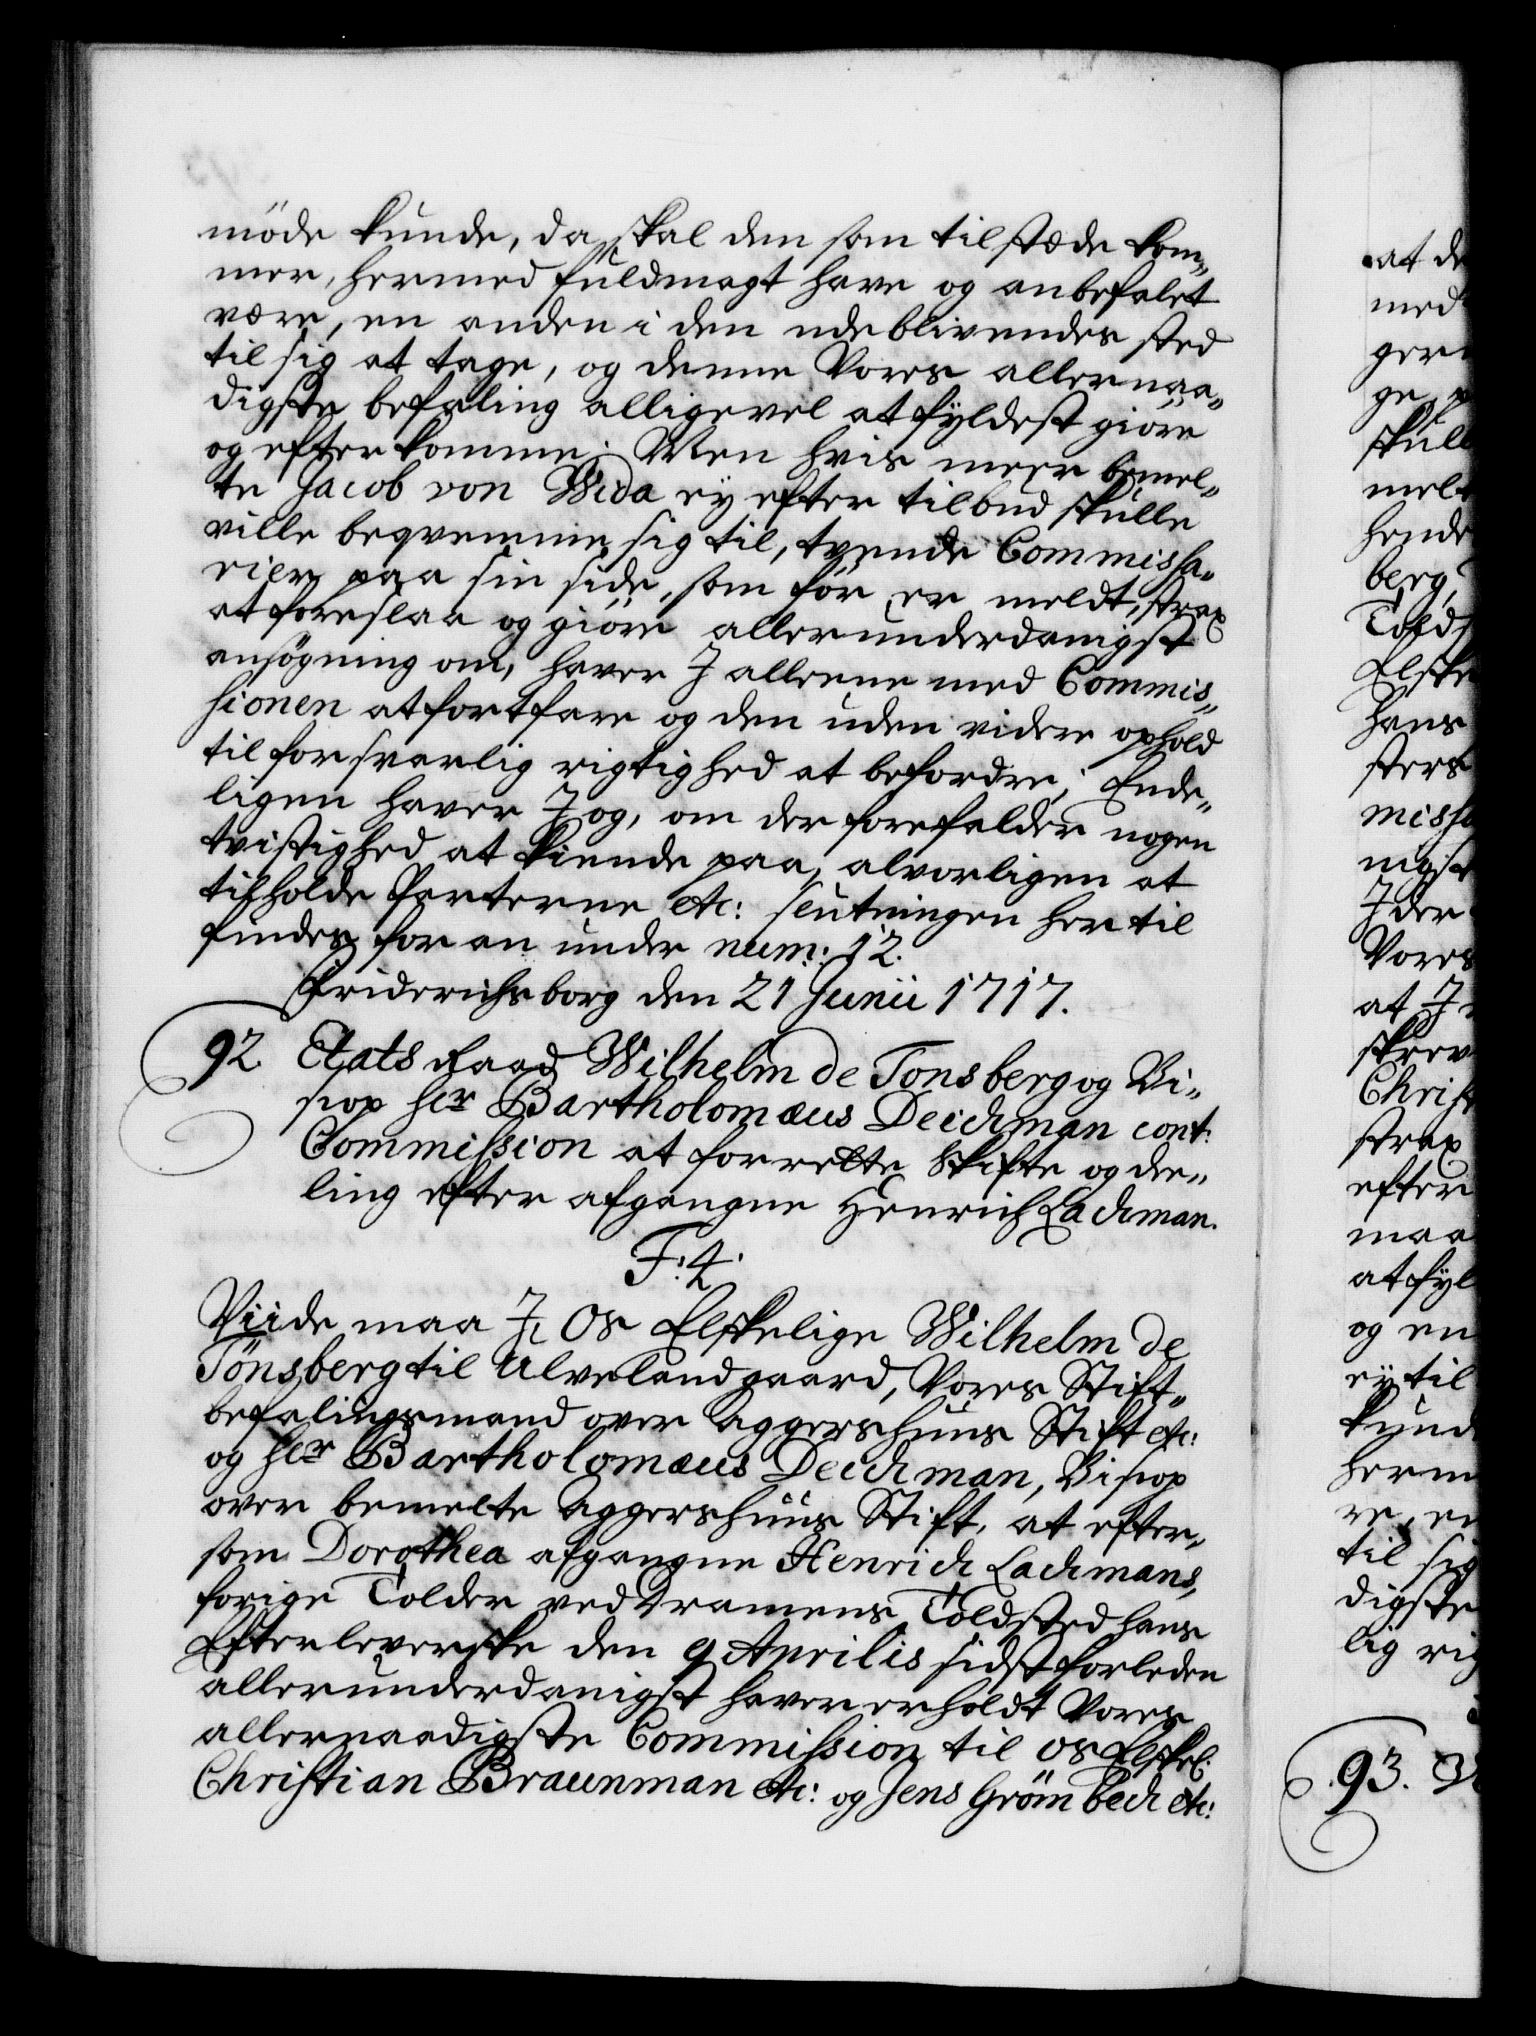 möde kunde, da skal den som tilstæde kom„
mer, hermed fuldmagt have og anbefalet
være, en anden i den udeblivendes sted
til sig at tage, og denne Vores allernaa„
digste befaling alligevel at fyldest giöre
og efterkomme. Men hvis meer bemel„
te Jacob von Wida ey efter tilbud skulle
ville beqvemme sig til, tvende Commissa„
rier paa sin side, som för er meldt, strax
at foreslaa og giöre allerunderdanigst
ansögning om, haver I alleene med Commis„
sionen at fortfare og den uden videre ophold
til forsvarlig rigtighed at befordre; Ende„
ligen haver I og, om der forefalder nogen
tvistighed at kiende paa, alvorligen at
tilholde Parterne etc: slutningen her til
findes for an under num: 12.
Friderichsborg den 21 Junii 1717.
92 Etats Raad Wilhelm de Tonsberg og Bi„
skop Hr Bartholomæus Deichman cont:
Commission at forrette Skifte og dee„
ling efter afgangne Henrich Lachman.
F: 4.
Viide maa I, Os Elskelige Wilhelm de
Tönsberg til Ulvelandgaard, Vores Stift„
befalingsmand over Aggershuus Stift etc:
og Hr Bartholomæus Deichman, Biskop
over bemelte Aggershuus Stift, at efter„
som Dorothea afgangne Henrich Lachmans,
forige Tolder ved Dramens Toldsted hans
Efterleverske den 9 Aprilis sidst forleden
allerunderdanigst haver erholdt Vores
allernaadigste Commission til os Elskel:
Christian Braunman etc: og Jens Grömbech etc:
at de
med
ge
skull
melt
berg,
Told
Elske
Hans
missa
nigst
I der
Vores
at I
skrev
Christ
strax
efter
maa
at fyl
og en
ey til
kund
herm
re, en
til sig
digste
lig rig
93.